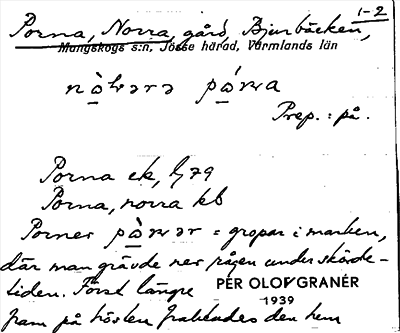 1-2
Porna, Norra, gård, Bjurbäcken,
Mangskogs s:n, Jösse härad, Värmlands län
Prep. : på.
Porna ek, G79
Porna, norra kb
Porner = gropar i marken,
där man grävde ner rågen under skörde-
tiden. Först längre
PER OLOF GRANÉR
1939
fram på hösten fraktades den hem